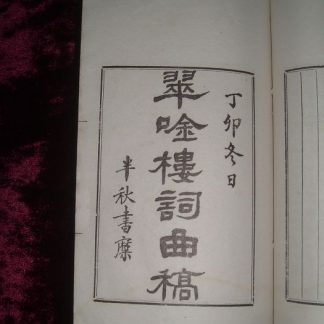 丁卯冬日
翠唫樓詞曲稿
半秋書糜